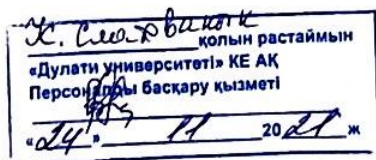 қолын растаймын
«Дулати университеті» КЕ АҚ
Персоналды басқару қызметі
«24» 11 2021 ж